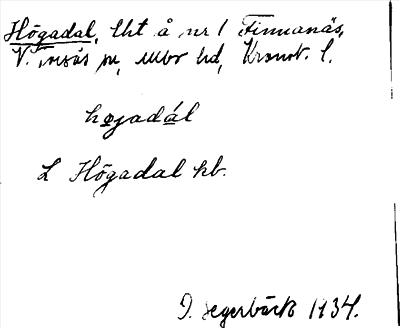 Högadal, lht å nr 1 Finnanäs,
V. Tväs sn, Mbr hd, Kronob. l.
högadál
L Högadal hb.
D. Segerbäck 1934.